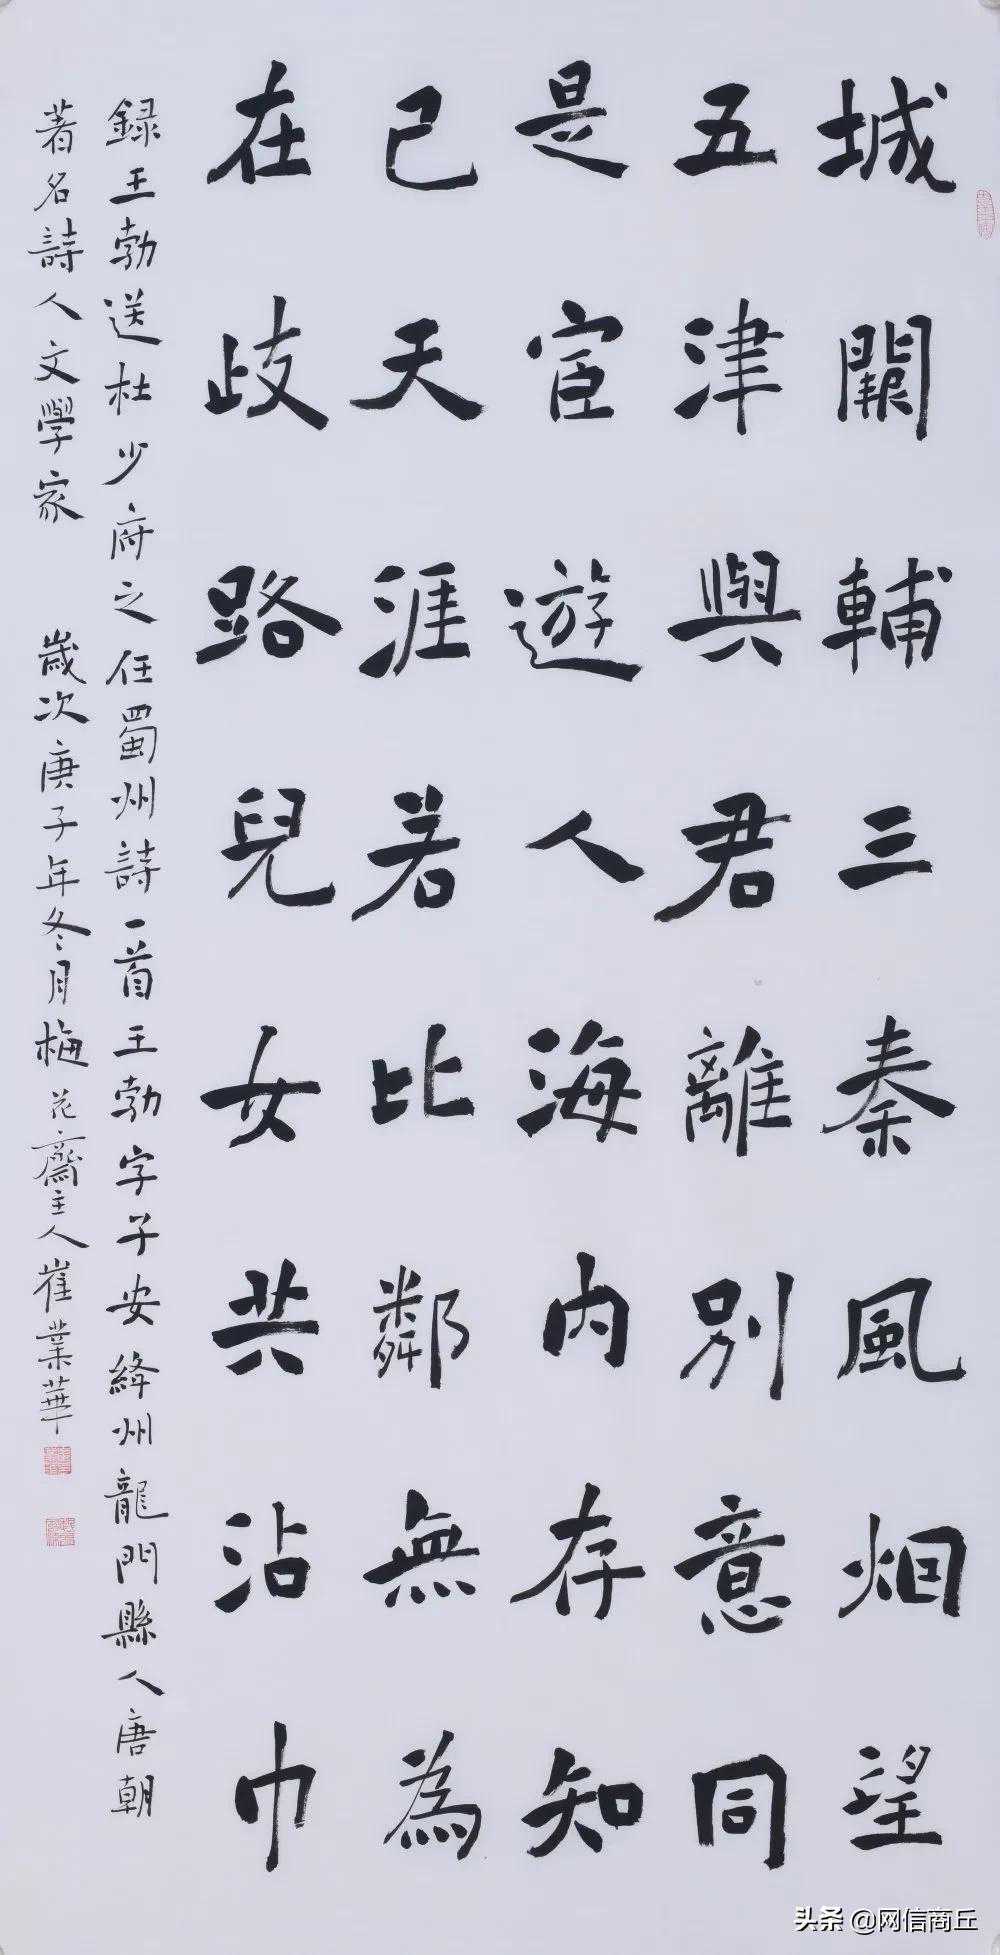 城闕輔三秦風烟望
五津與君離別意同
是宦遊人海内存知
己天涯若比鄰無為
在歧路兒女共沾巾
録王勃送杜少府之任蜀州詩一首王勃字子安絳州龍門縣人唐朝
著名詩人文學家 歲次庚子年冬月梅花齋主人崔業華
头条 @网信商丘